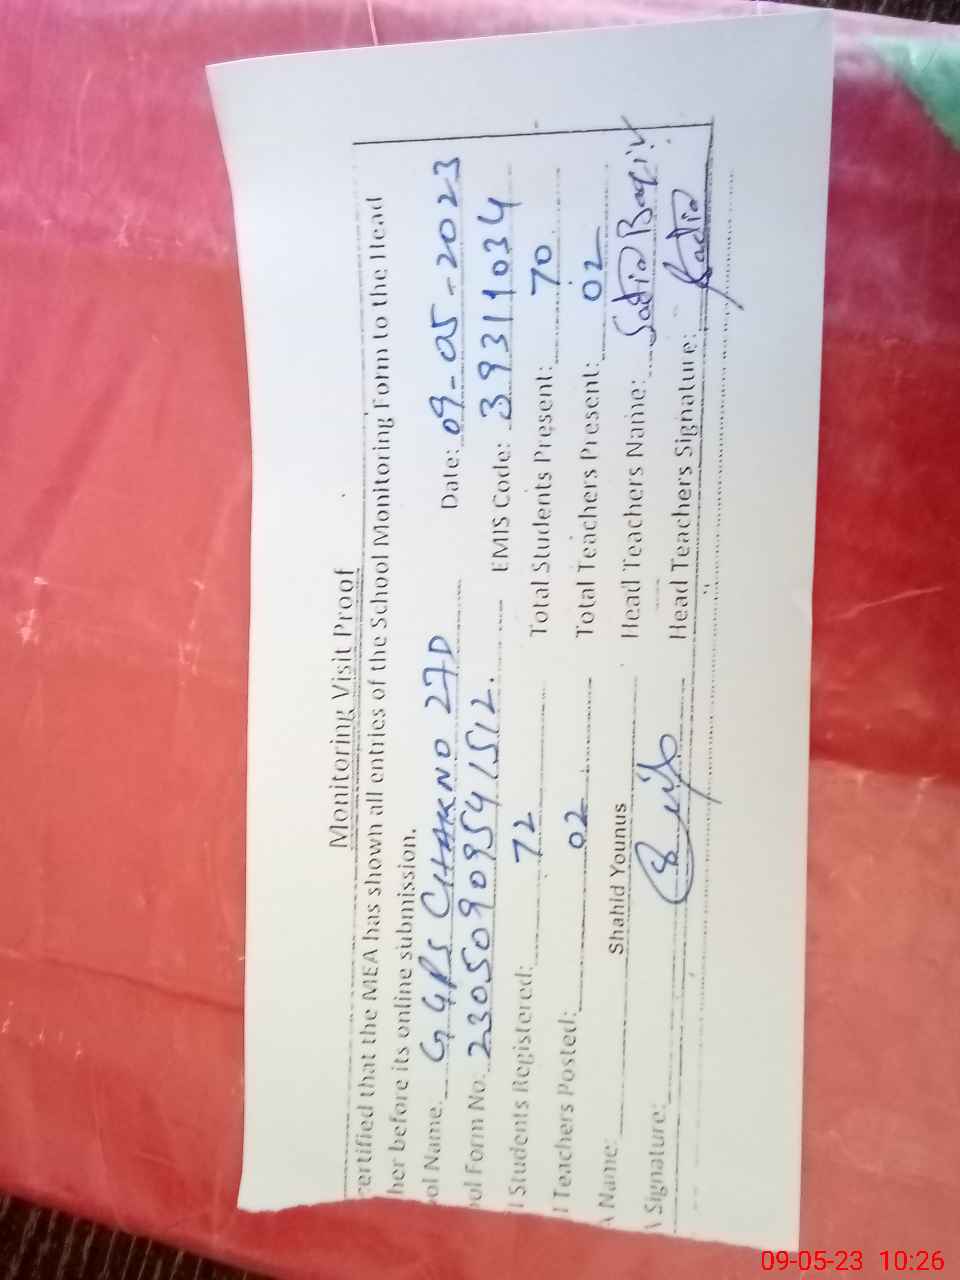 Monitoring Visit Proof
certified that the MEA has shown all entries of the School Monitoring Form to the Head
her before its online submission.
ol Name: GGPS CHAK NO 27D Date: 09-05-2023
ol Form No. 23050909541512. EMIS Code: 39311034
l Students Registered: 72 Total Students Present: 70
l Teachers Posted: 02 Total Teachers Present: 02
A Name: Shahid Younus Head Teachers Name: Sadia
A Signature: Head Teachers Signature: Sadia
09-05-23 10:26